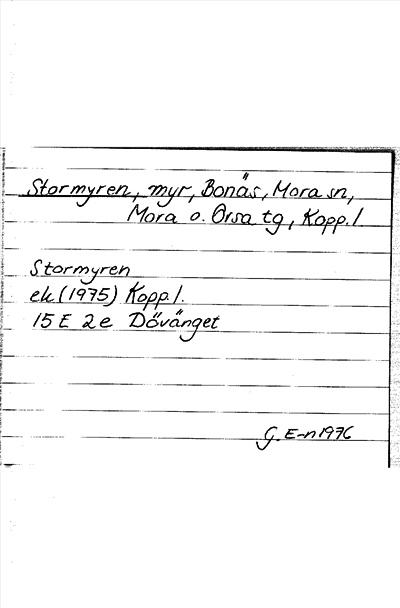 Stormyren, myr, Bonäs, Mora sn,
Mora o. Orsa tg, Kopp. l
Stormyren
ek (1975) Kopp. l.
15 E 2 e Dövänget
G. E-n 1976